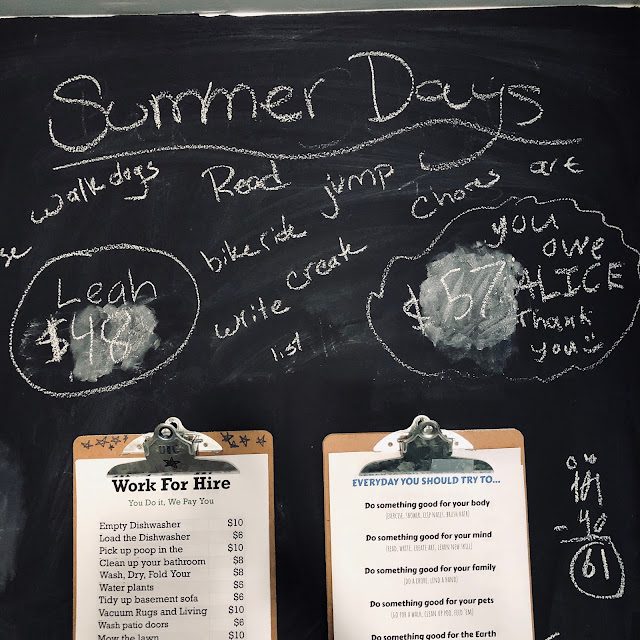 Summer Days
walk dogs Read jump chores art
bike ride
create
write
list
Leah
$48
you
owe
$57 ALICE
Thank
you
Work For Hire
You Do it, We Pay You
Empty Dishwasher $10
Load the Dishwasher $6
Pick up poop in the $10
Clean up your bathroom $8
Wash, Dry, Fold Your $8
Water plants $5
Tidy up basement sofa $6
Vacuum Rugs and Living $10
Wash patio doors $6
Mow the lawn
EVERYDAY YOU SHOULD TRY TO...
Do something good for your body
(EXERCISE, SHOWER, CLIP NAILS, BRUSH HAIR)
Do something good for your mind
(READ, WRITE, CREATE ART, LEARN NEW SKILL)
Do something good for your family
(DO A CHORE, LEND A HAND)
Do something good for your pets
(GO FOR A WALK, CLEAN UP POO, FEED 'EM)
Do something good for the Earth
101
- 40
61